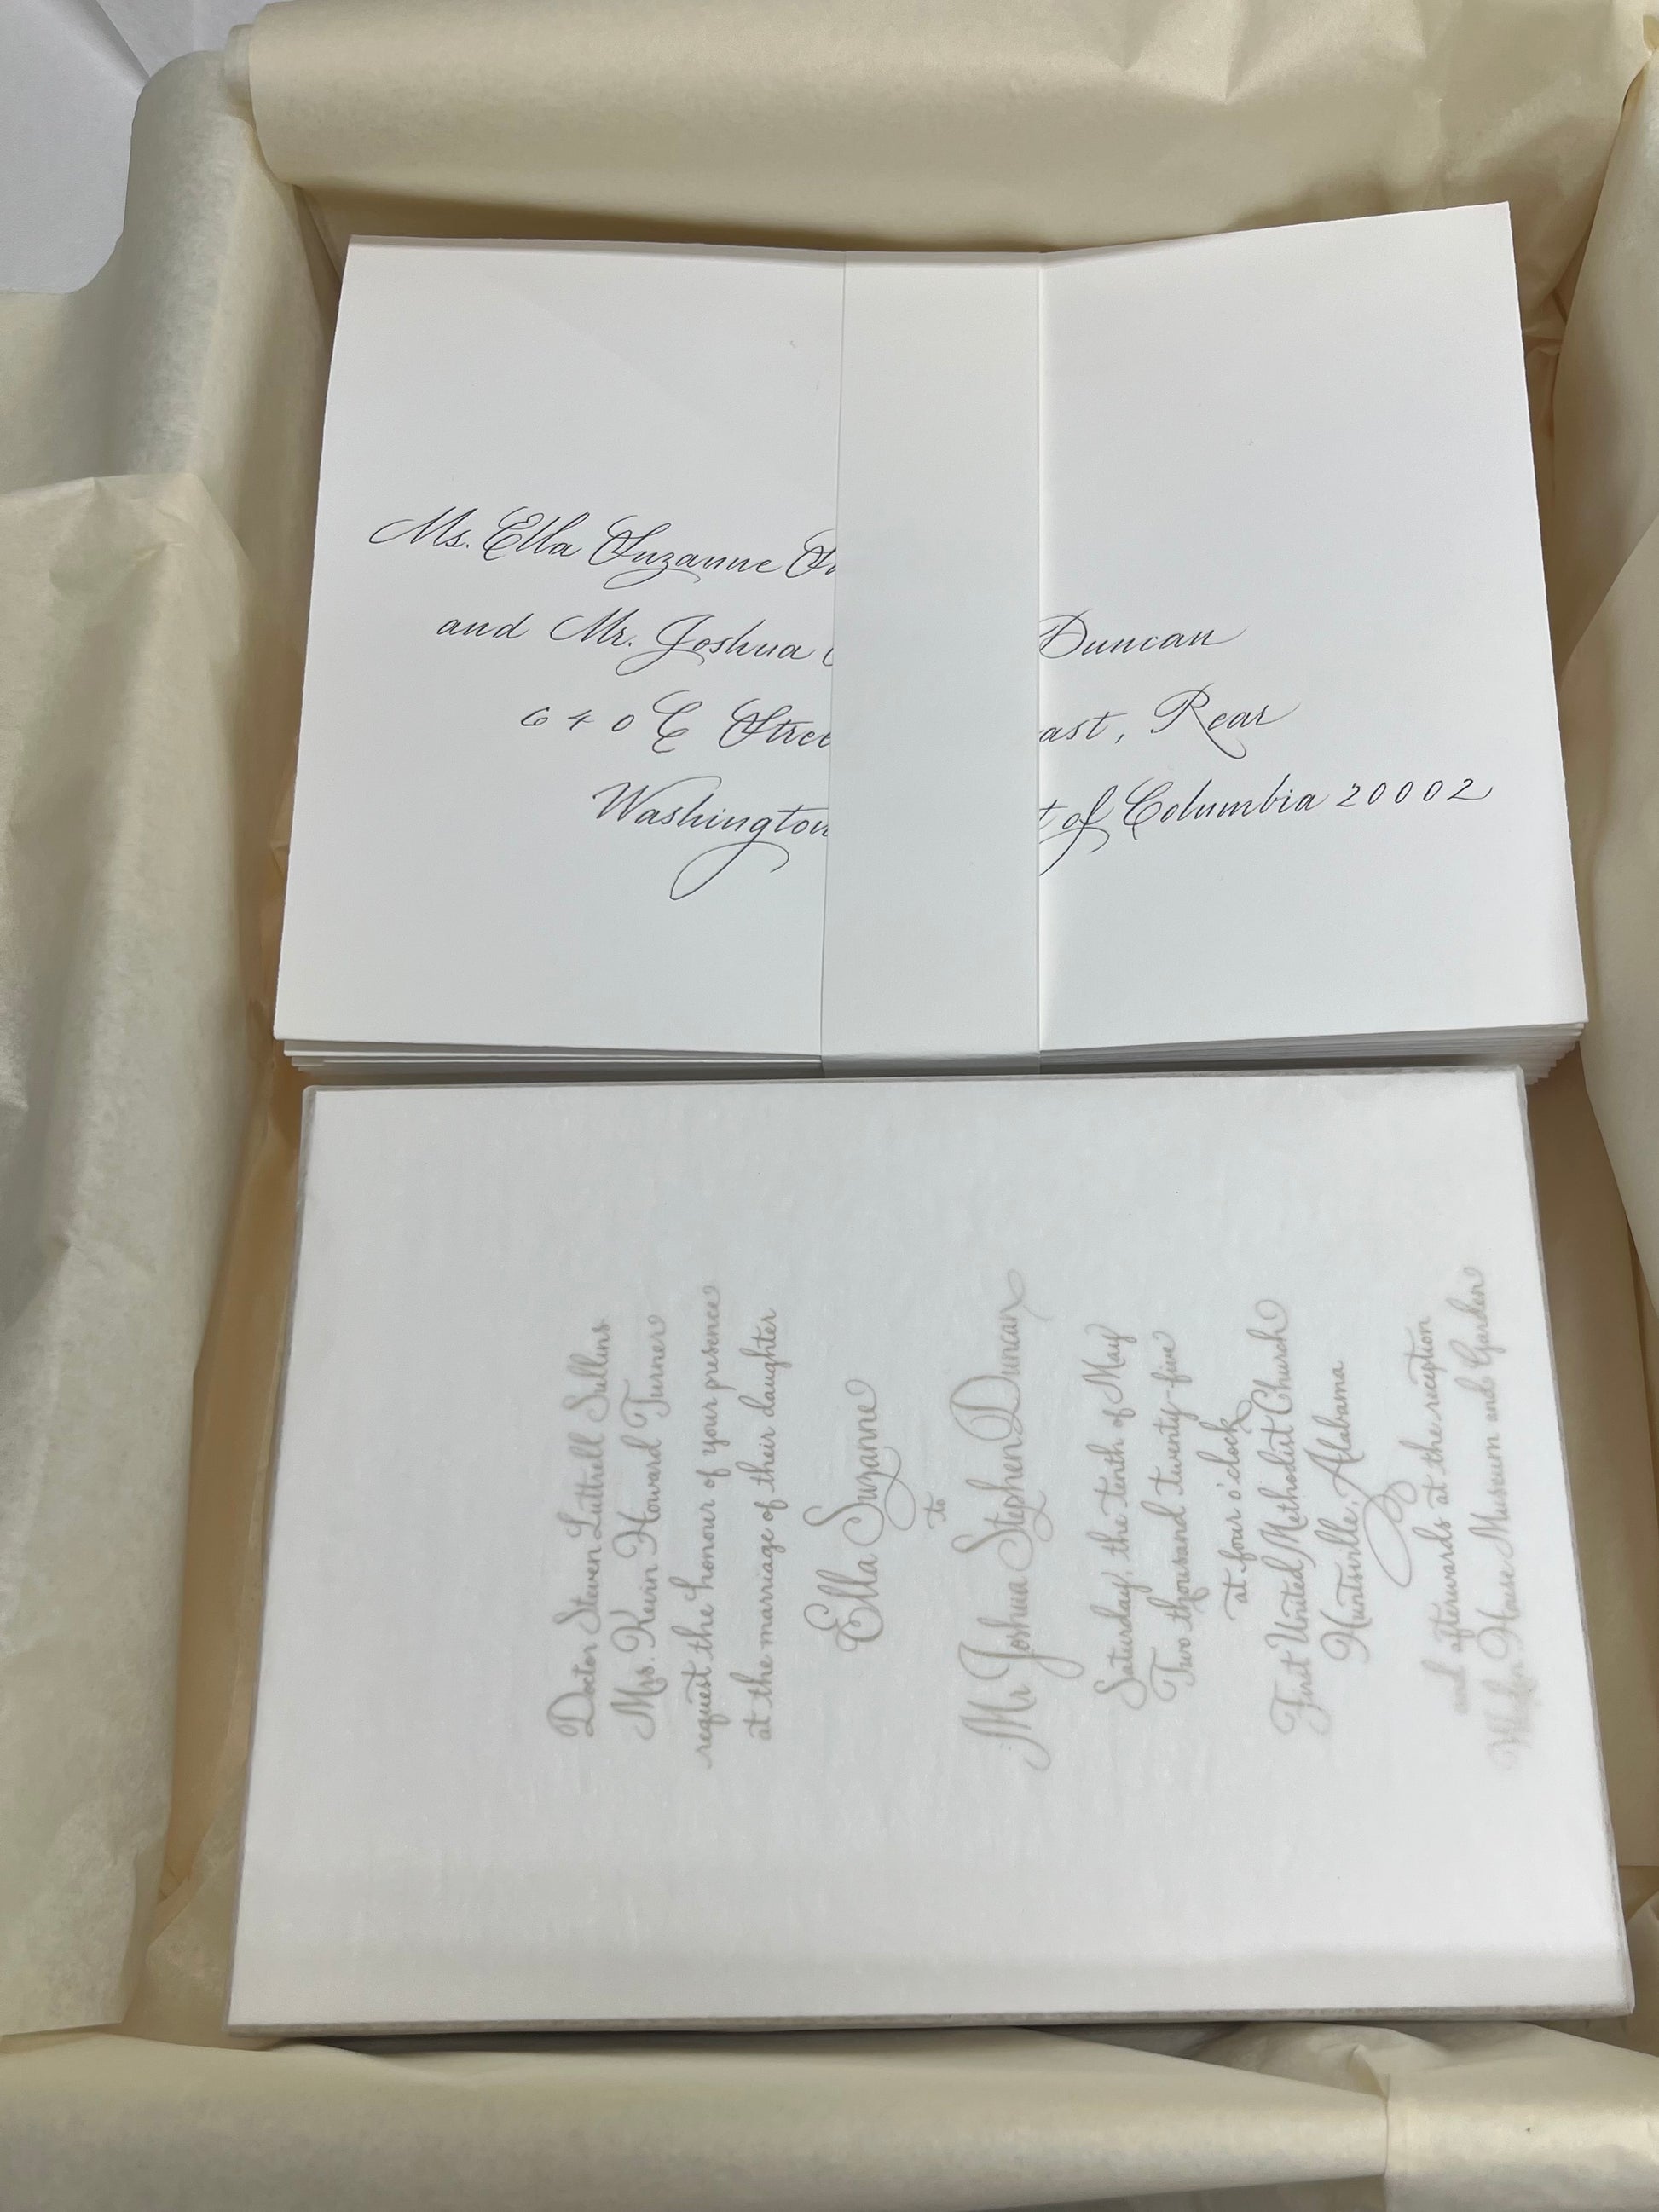 Ms. Ella Suzanne
and Mr. Joshua Duncan
640 E Stree ast, Rear
Washington t of Columbia 20002
Doctor Steven Luttrell Sullins
Mrs. Kevin Howard Turner
request the honour of your presence
at the marriage of their daughter
Ella Suzanne
to
Mr Joshua Stephen Duncan
Saturday, the tenth of May
Two thousand twenty-five
at four o'clock
First United Methodist Church
Huntsville, Alabama
and afterwards at the reception
House Museum and Garden